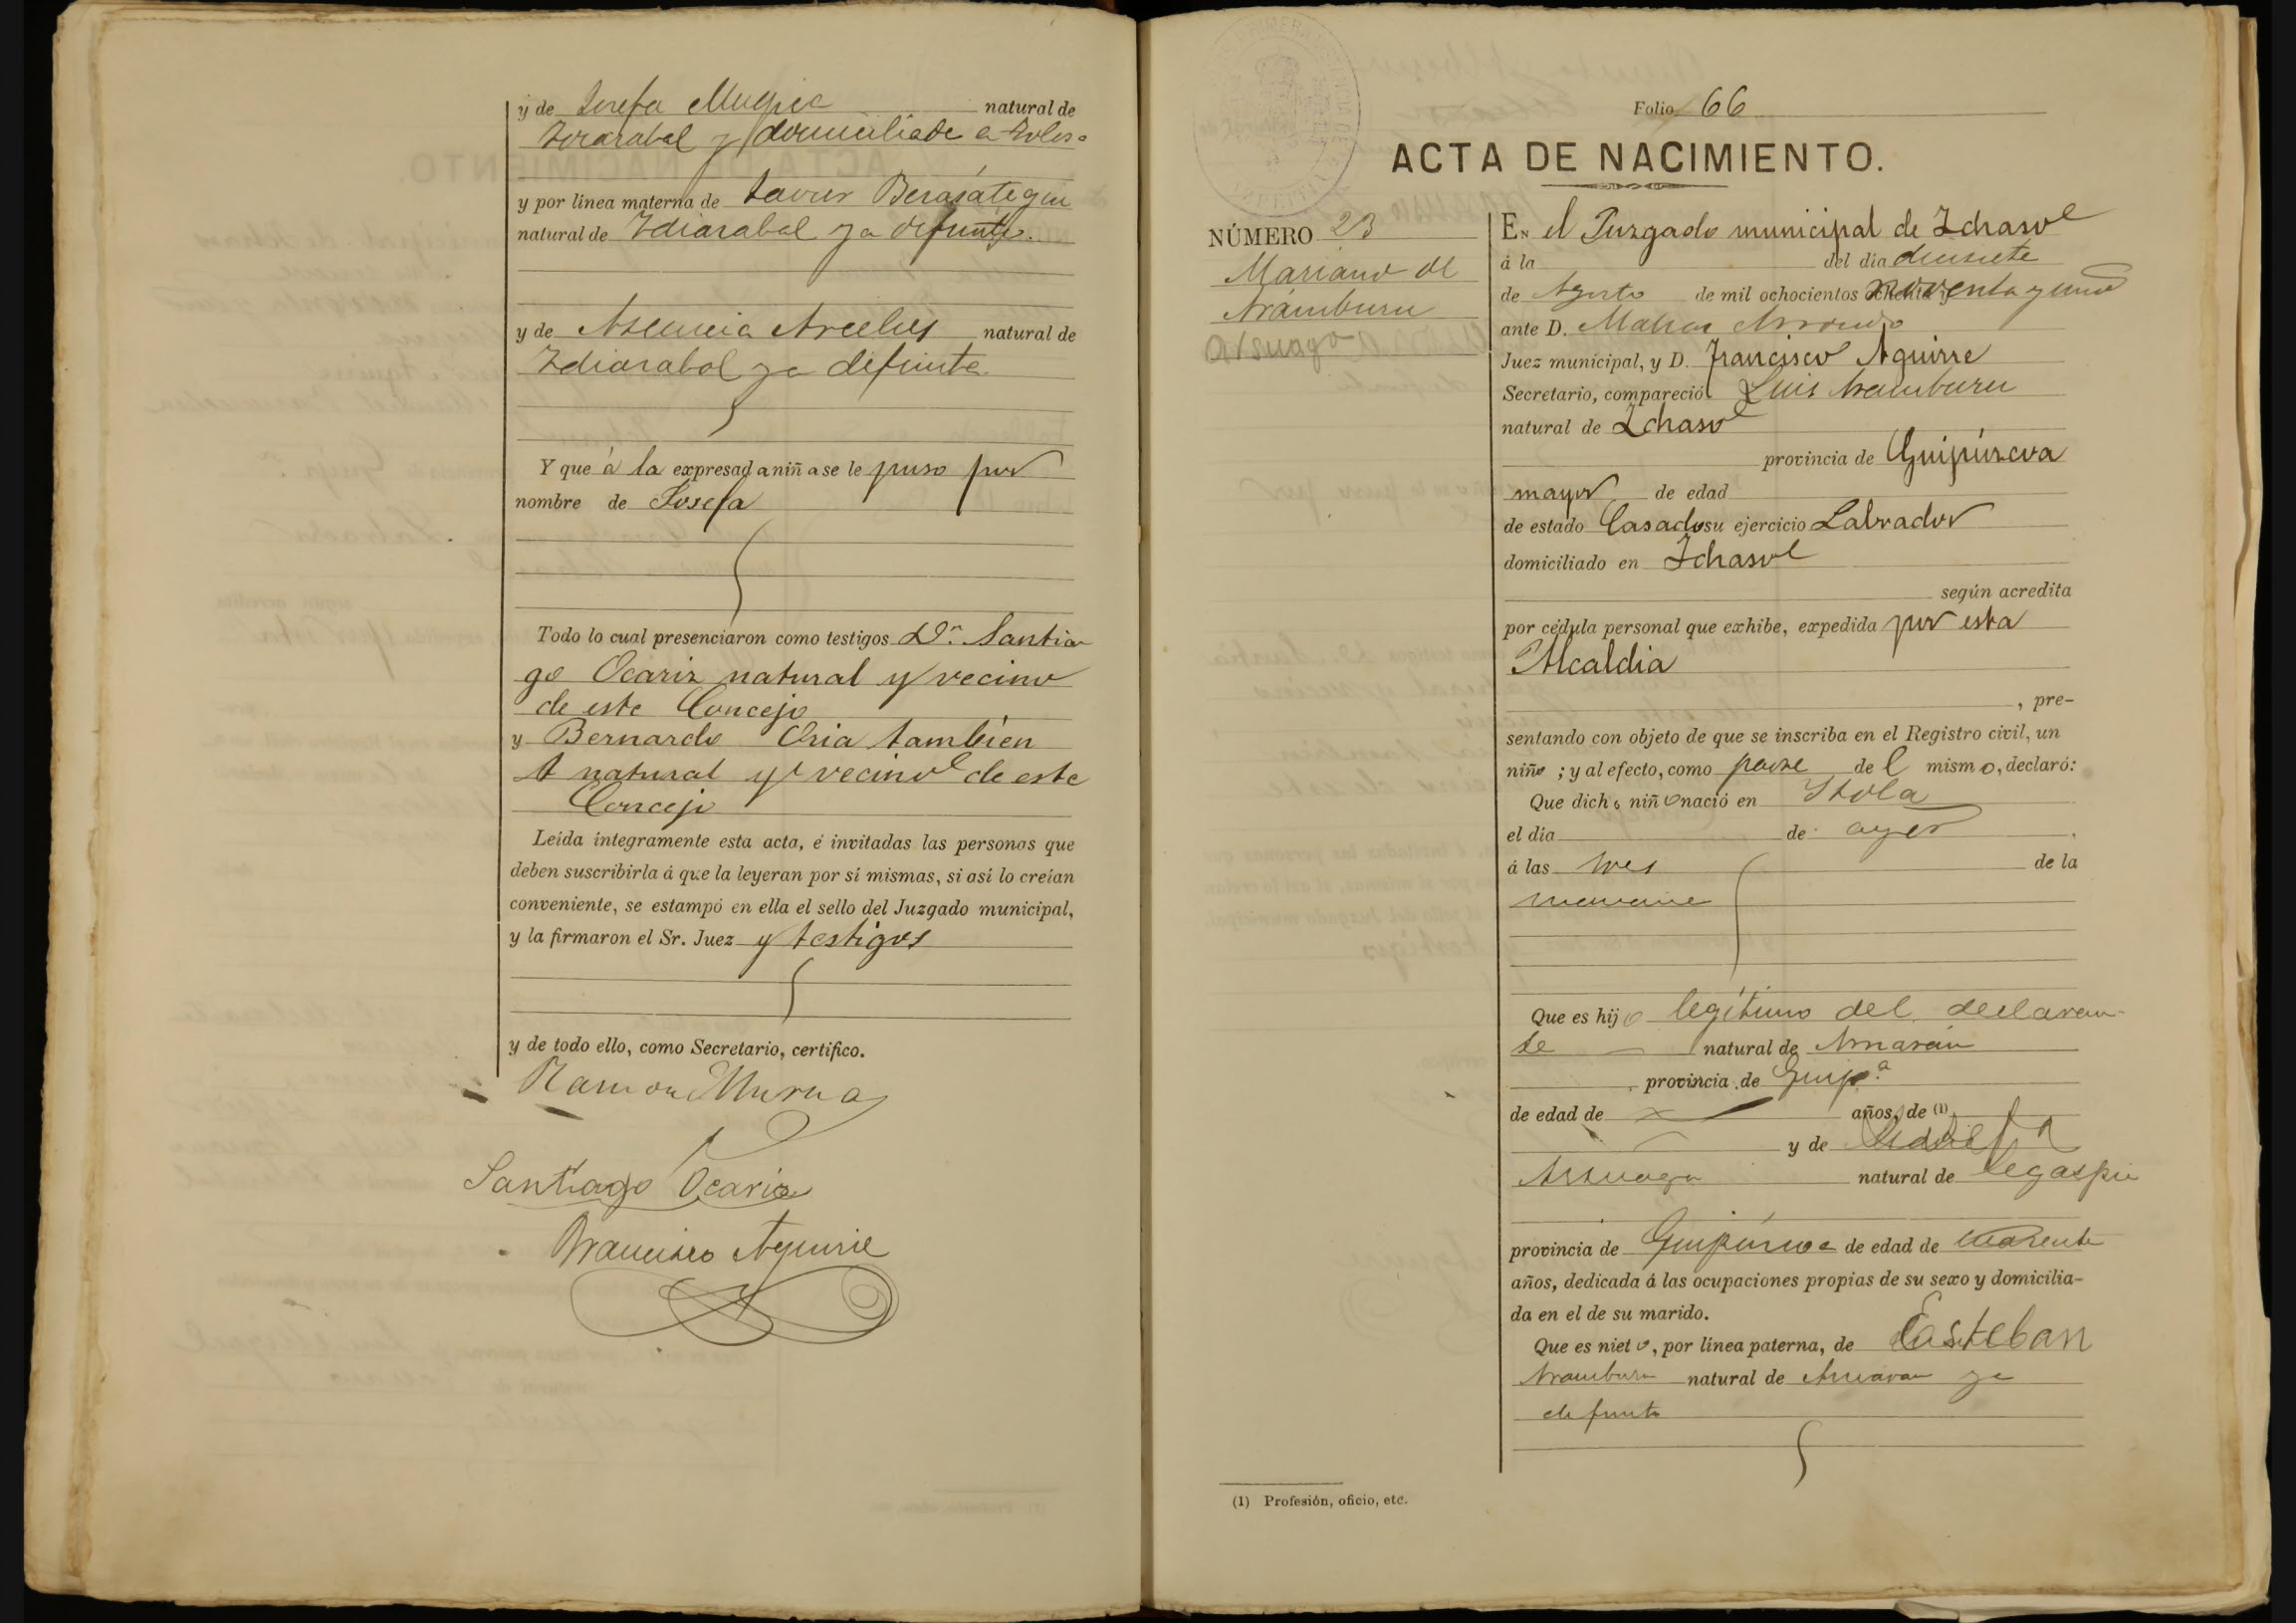 y de Josefa Mugica natural de
Idiazabal y domiciliada en Tolosa
y por línea materna de Javier Berasategui
natural de Idiazabal ya difunto.
y de Asencia Arcelus natural de
Idiazabal ya difunta
Y que á la expresada niña se le puso por
nombre de Josefa
Todo lo cual presenciaron como testigos Dn. Santia
go Ocariz natural y vecino
de este Concejo
y Bernardo Oria tambien
natural y vecino de este
Concejo
Leída íntegramente esta acta, é invitadas las personas que
deben suscribirla á que la leyeran por sí mismas, si así lo creían
conveniente, se estampó en ella el sello del Juzgado municipal,
y la firmaron el Sr. Juez y testigos
y de todo ello, como Secretario, certifico.
Ramon Murua
Santiago Ocariz
Francisco Aguirre
Folio 66
ACTA DE NACIMIENTO.
NÚMERO 23
Mariano de
Arámburu
Arsuaga
En el Juzgado municipal de Ichaso
á la del día diecisiete
de Agosto de mil ochocientos noventa y uno
ante D. Matias Arrondo
Juez municipal, y D. Francisco Aguirre
Secretario, compareció Luis Aramburu
natural de Ichaso
provincia de Guipúzcoa
mayor de edad
de estado Casado su ejercicio Labrador
domiciliado en Ichaso
según acredita
por cédula personal que exhibe, expedida por esta
Alcaldia
, pre-
sentando con objeto de que se inscriba en el Registro civil, un
niño ; y al efecto, como padre del mismo, declaró:
Que dicho niño nació en
el día de ayer
á las tres de la
mañana
Que es hijo legítimo del declaran-
te natural de Arriarán
provincia de Guipa.
de edad de años, de (1)
y de
Arsuaga natural de Legazpia
provincia de Guipúzcoa de edad de cuarenta
años, dedicada á las ocupaciones propias de su sexo y domicilia-
da en el de su marido.
Que es nieto, por línea paterna, de Esteban
Aramburu natural de Arriaran ya
difunto
(1) Profesión, oficio, etc.